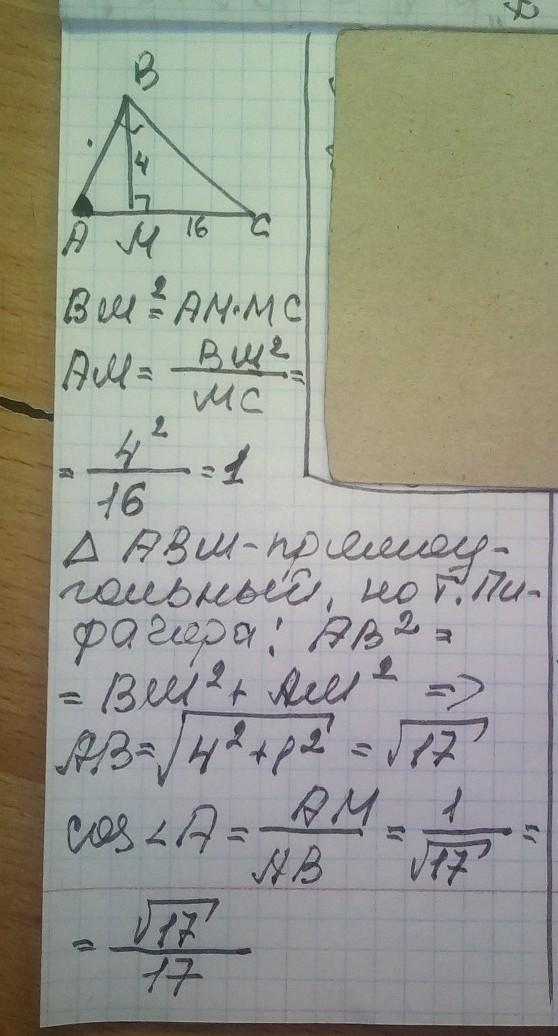 B
4
A M 16 C
BM² = AM·MC
AM = BM²/MC =
= 4²/16 = 1
Δ ABM-прямоу-
гольный, по т. Пи-
фагора: AB² =
= BM² + AM² =>
AB = √(4²+1²) = √17
cos ∠A = AM/AB = 1/√17 =
= √17/17